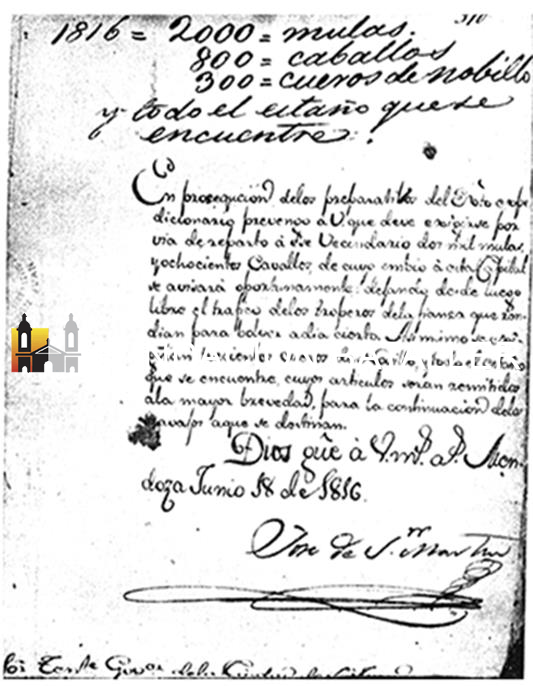 310
1816 = 2000 = mulas.
800 = caballos
300 = cueros de nobillo
y todo el estaño que se
encuentre.
En prosequcion delos preparativos del Exto expe
dicionario prevengo à V. que deve exigirse por
via de reparto à ese Vecindario dos mil mulas,
y ochocientos Cavallos, de cuyo embio à esta Capital
se avisará oportunamente: dejando desde luego
libre el trafico delos troperos dela fianza que ren
dian para bolver adia cierto. Asimismo se
trescientos cueros
que se encuentre, cuyos articulos seran remitidos
ala mayor brevedad, para la continuacion delos
aque se destinan.
Dios gũe à V. m.s a.s Men
doza Junio 18 de 1816.
Jose de S.n Martin